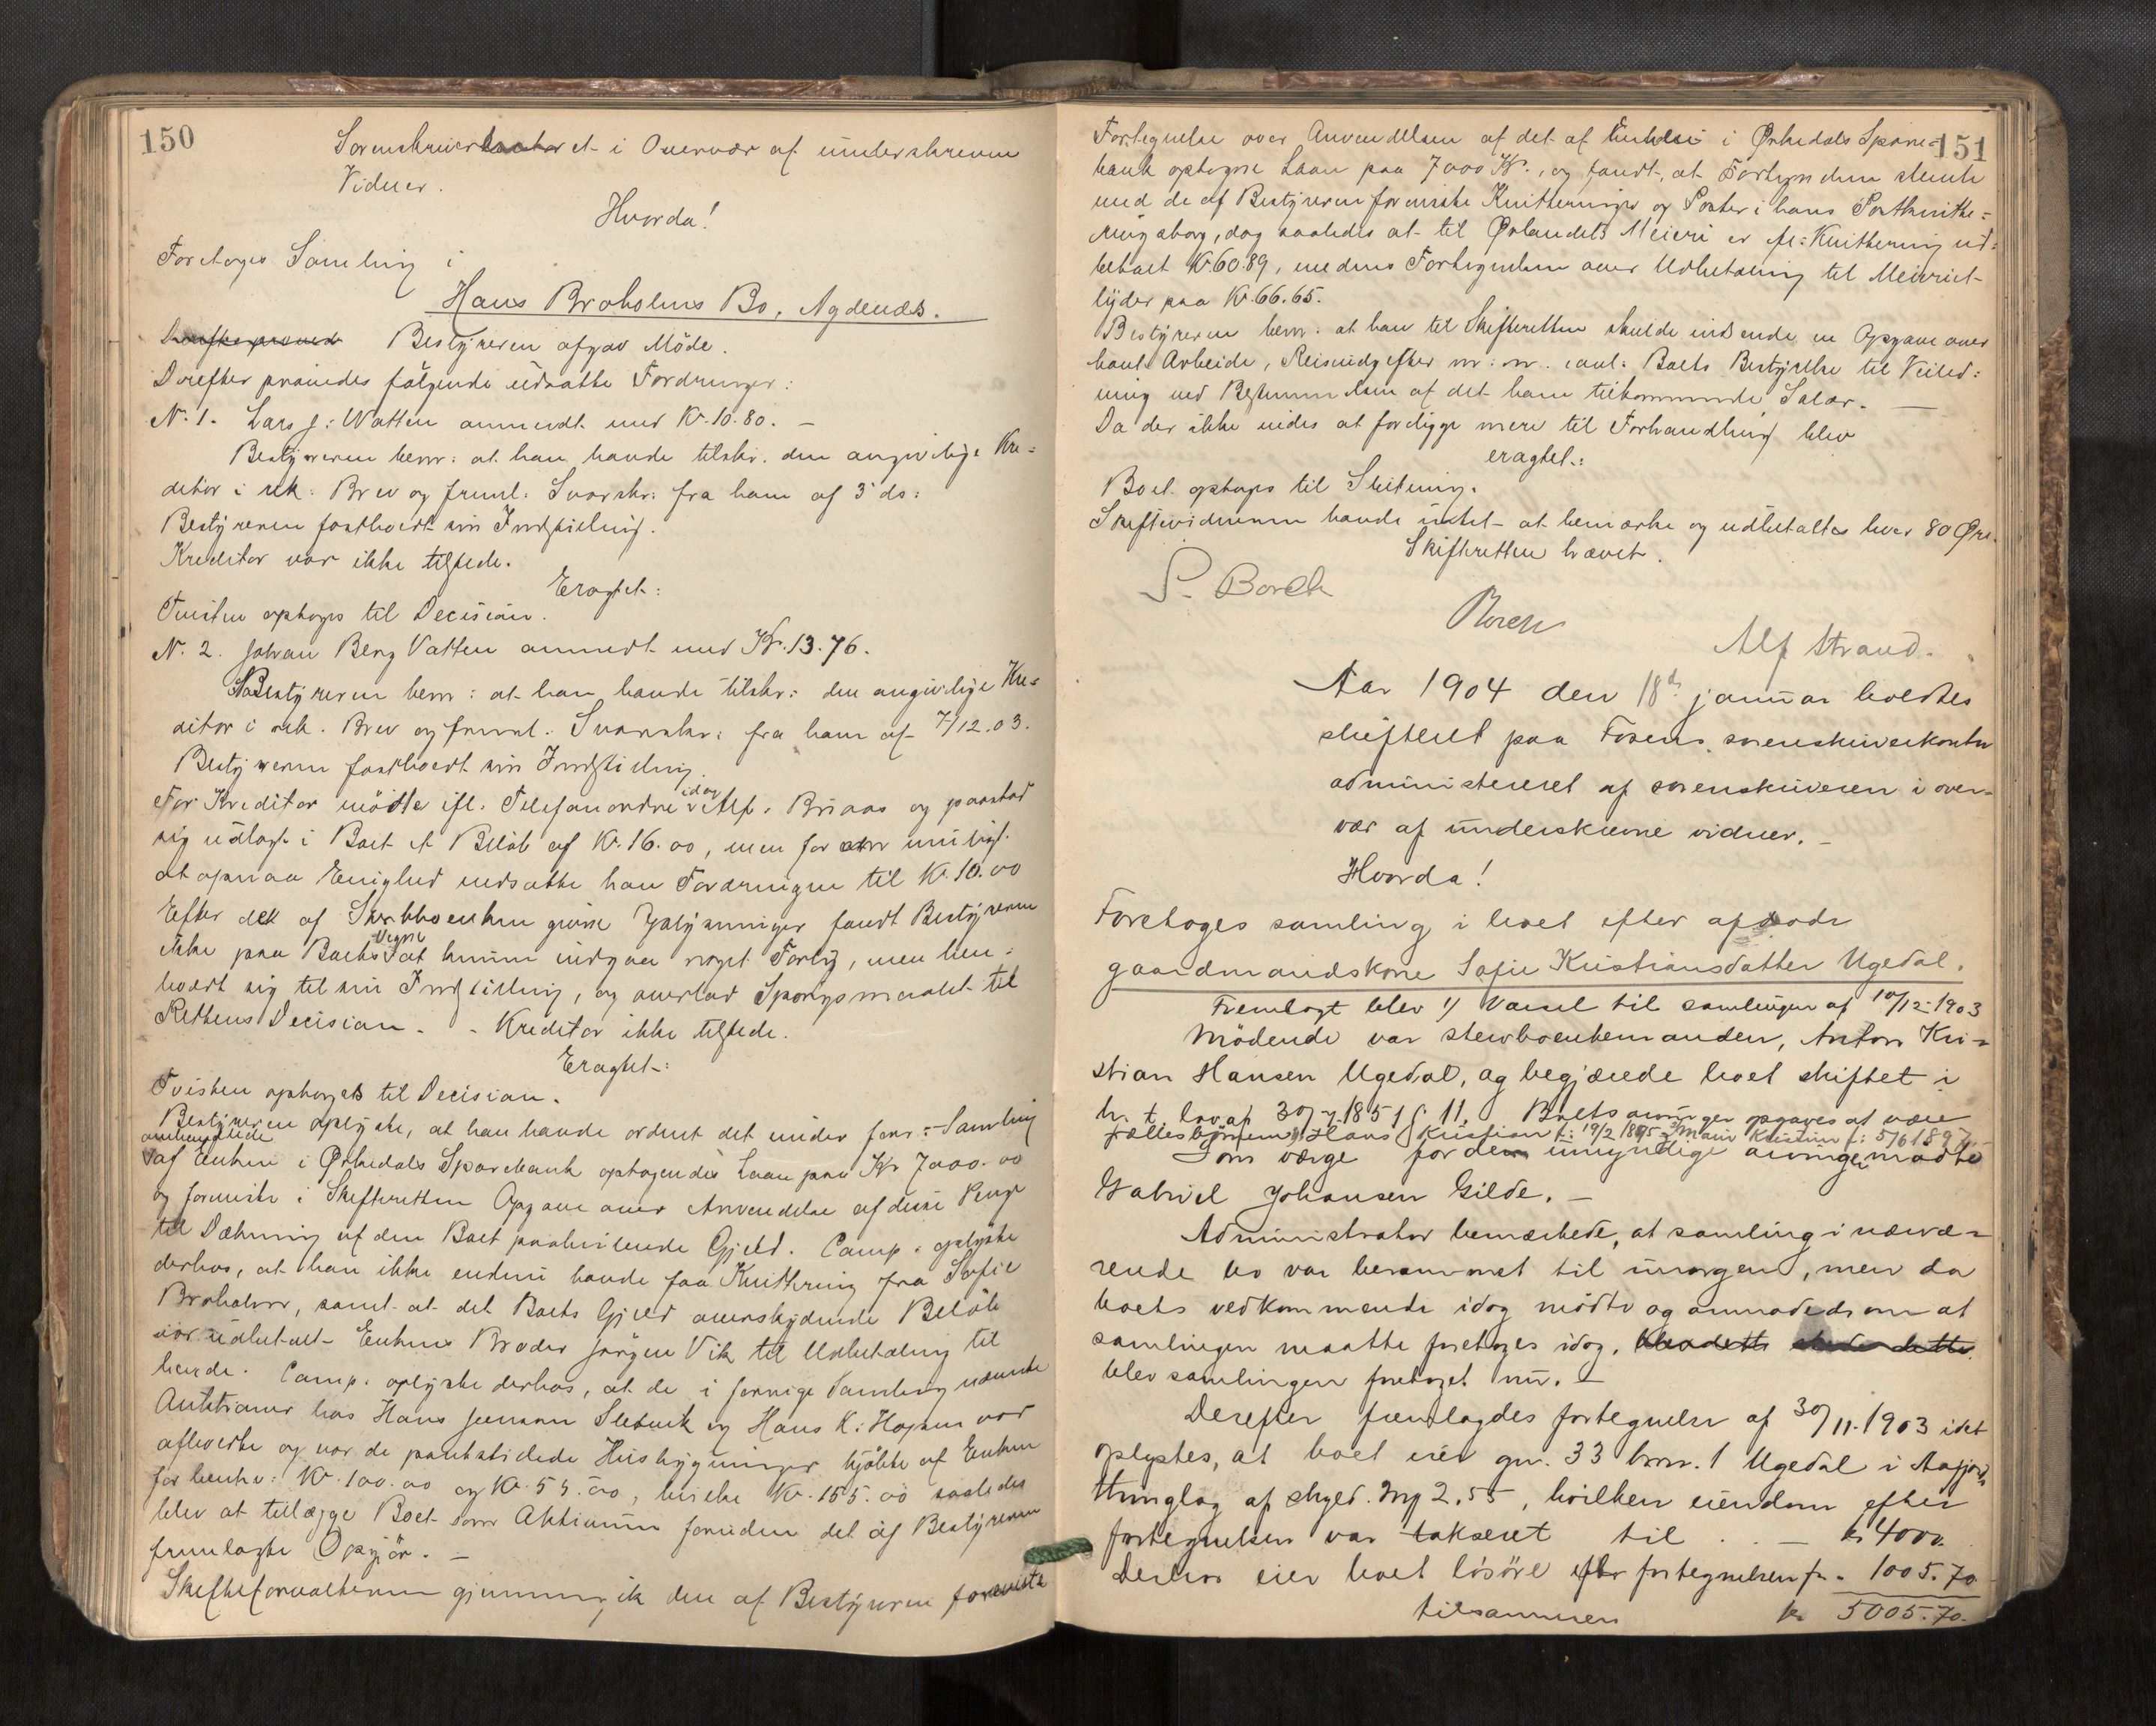 150
Sorenskriverkontoret i Overvær af underskrevne
Vidner.
Hvorda!
Foretoges Samling i
Hans Broholms Bo, Agdenæs.
Bestyreren afgav Möde.
Derefter prövedes fölgende udsatte Fordringer:
N. 1. Lars J: Vatten anmeldt med Kr. 10.80. –
Bestyreren bem: at han havde tilskr. den angivelige Kre=
ditor i rek: Brev og freml: Svarskr: fra ham af 3 ds:
Bestyreren fastholdt sin Indstilling.
Kreditor var ikke tilstede.
Eragtet:
Tvisten optages til Decision.
N. 2. Johan Berg Vatten anmeldt med Kr. 13.76.
Bestyreren bem: at han havde tilskr: den angivelige Kre=
ditor i rek. Brev og freml. Svarskr: fra ham af 7/12.03.
Bestyreren fastholdt sin Indstilling.
For Kreditor mödte ifl. Telefonordre idag Alf. Briaas og paastod
sig udlagt i Boet et Belöb af Kr. 16.00, men for om muligt
at opnaa Enighed nedsatte han Fordringen til Kr. 10.00
Efter de af Stervboenken givne Oplysninger fandt Bestyreren
ikke paa Boets Vegne at kunne indgaa noget Forlig, men hen=
holdt sig til sin Indstilling, og overlod Spörgsmaalet til
Rettens Decision. - Kreditor ikke tilstede.
Eragtet:
Tvisten optages til Decision.
Bestyreren oplyste, at han havde ordnet det under forr: Samling
omhandlede
af Enken i Örkedals Sparebank optagendes Laan paa Kr 7000.00
og foreviste i Skifteretten Opgave over Anvendelse af disse Penge
til Dækning af den Boet paahvilende Gjeld. Comp. oplyste
derhos, at han ikke endnu havde faa Kvittering fra Sofie
Broholm, samt at det Boets Gjeld overskydende Belöb
var udbetalt Enkens Broder Jörgen Vik til Udbetaling til
hende. Comp. oplyste derhos, at de i forrige Samling nævnte
Auktioner hos Hans Jensen Slebuik og Hans K: Hopen var
afholdte og var de pantstillede Husbygninger kjöbte af Enken
for henh: Kr. 100.00 og Kr. 55.00, hvilke Kr. 155.00 saaledes
blev at tillægge Boet som Aktivum foruden det af Bestyreren
fremlagte Opgjör. –
Skifteforvalteren gjennemgik den af Bestyreren foreviste
151
Fortegnelse over Anvendelsen af det af Enken i Örkedals Spare=
bank optagne Laan paa 7000 Kr., og fandt, at Fortegnelsen stemte
med de af Bestyreren foreviste Kvitteringer og Poster i hans Postkvitte=
ringsbog, dog saaledes at til Ørlandets Meieri er ifl: Kvittering ud=
betalt Kr. 60.89, medens Fortegnelsen over Udbetaling til Meieriet
lyder paa Kr. 66.65.
Bestyreren bem: at han til Skifteretten skulde indsende en Opgave over
hans Arbeide, Reiseudgifter m: m. i anl: Boets Bestyrelse til Veiled=
ning ved Bestemmelsen af det ham tilkommende Salær. –
Da der ikke vides at foreligge mere til Forhandling blev
eragtet:
Boet optages til Slutning.
Skiftevidnerne havde intet at bemærke og udbetaltes hver 80 Øre.
Skifteretten hævet.
P. Borch
Borch
Alf Strand.
Aar 1904 den 18de januar holdtes
skifteret paa Fosens sorenskriverkontor
administreret af sorenskriveren i over=
vær af underskrevne vidner. –
Hvorda!
Foretoges samling i boet efter afdöde
gaardmandskone Sofie Kristiansdatter Ugedal.
Fremlagt blev 1/ Varsel til samlingen af 10/12-1903
Mödende var stervboenkemanden, Anton Kri=
stian Hansen Ugedal, og begjærede boet skiftet i
h. t. lov af 30/7 1851 § 11. Boets arvinger opgaves at være
fællesbörnene 1) Hans Kristian f: 19/2 1895 2) Marie Kristine f: 5/6 1897
Som værge for de umyndige arvinger mödte
Gabriel Johansen Gilde. –
Administrator bemærkede, at samling i nærvæ=
rende bo var berammet til imorgen, men da
boets vedkommende idag mödte og anmodede om at
samlingen maatte foretages idag,
blev samlingen foretaget nu. –
Derefter fremlagdes fortegnelse af 30/11.1903 idet
oplystes, at boet eier gn. 33 brn. 1 Ugedal i Aafjord
thinglag af skyld. Mk 2.55, hvilken eiendom efter
fortegnelsen var takseret til . . – kr 4000.
Derhos eier boet lösöre efter fortegnelsen fr. - 1005.70
tilsammen kr 5005.70.